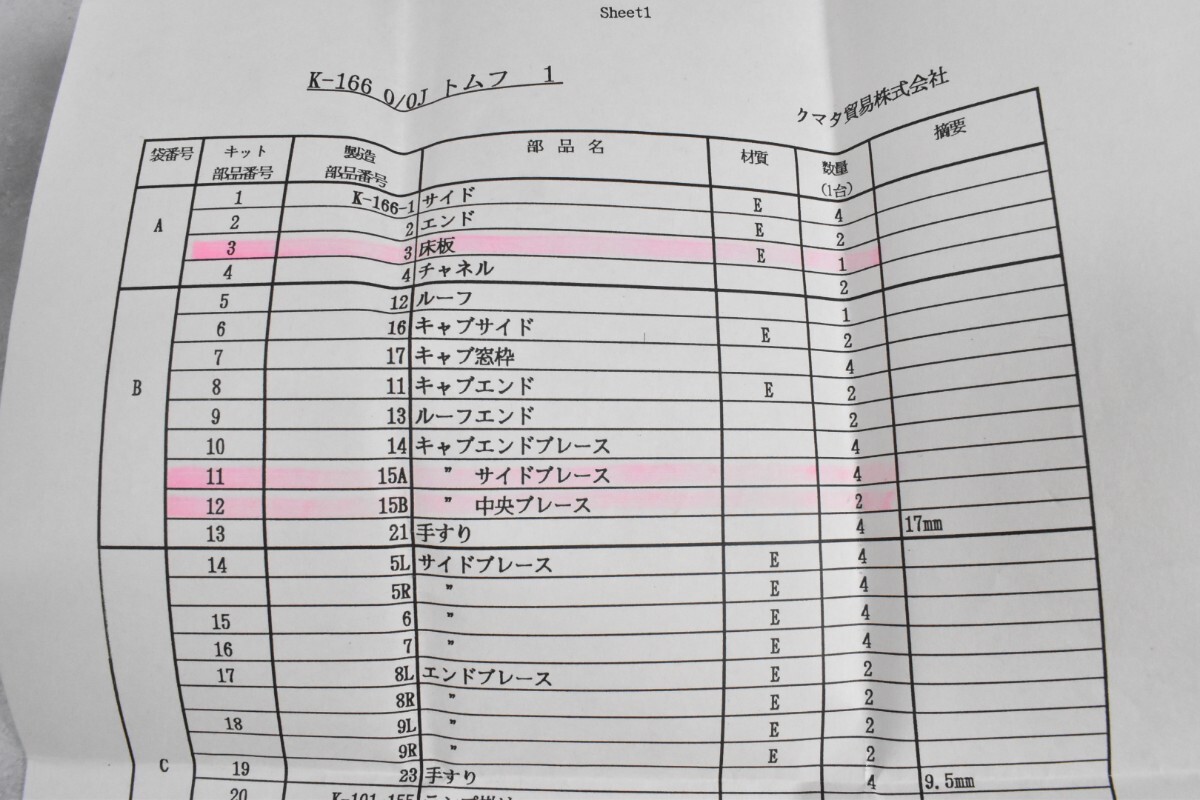 Sheet1
K-166 O/OJ トムフ 1
クマタ貿易株式会社
袋番号 キット部品番号 製造部品番号 部品名 材質 数量(1台) 摘要
A 1 K-166-1 サイド E 4
2 2 エンド E 2
3 3 床板 E 1
4 4 チャネル 2
B 5 12 ルーフ 1
6 16 キャブサイド E 2
7 17 キャブ窓枠 4
8 11 キャブエンド E 2
9 13 ルーフエンド 2
10 14 キャブエンドブレース 4
11 15A 〃 サイドブレース 4
12 15B 〃 中央ブレース 2
13 21 手すり 4 17mm
C 14 5L サイドブレース E 4
5R 〃 E 4
15 6 〃 E 4
16 7 〃 E 4
17 8L エンドブレース E 2
8R 〃 E 2
18 9L 〃 E 2
9R 〃 E 2
19 23 手すり 4 9.5mm
20 K-101-155